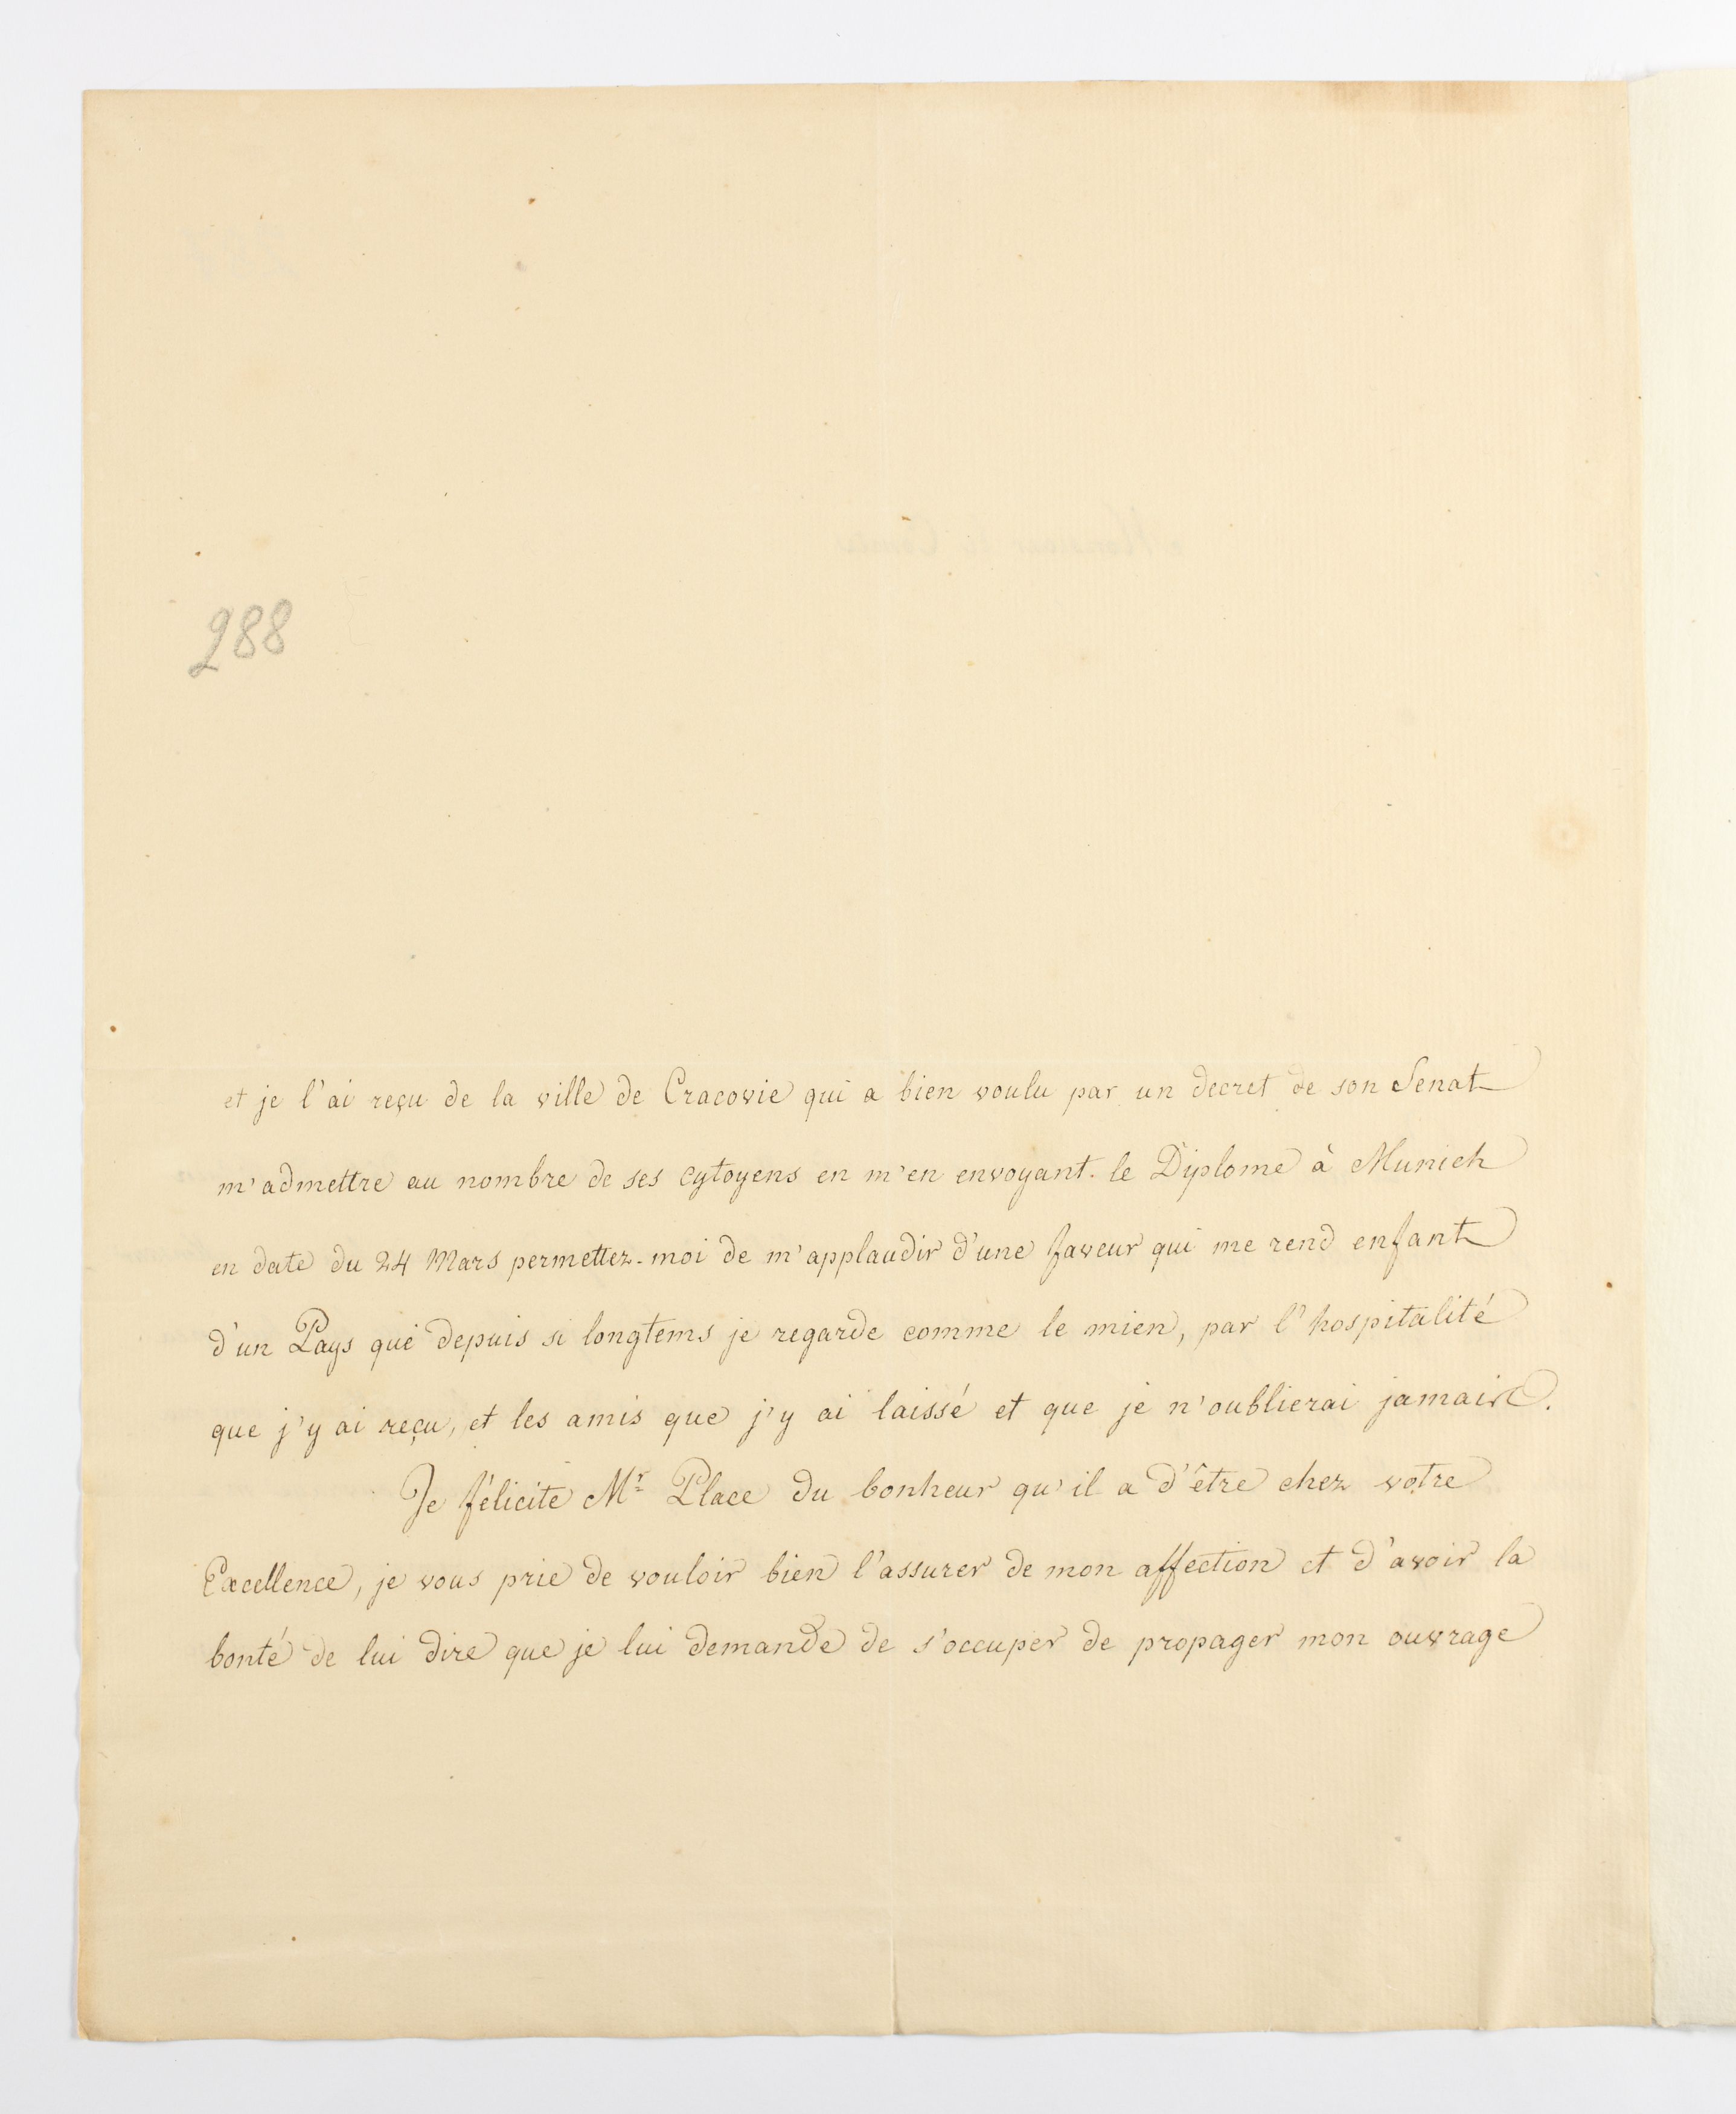 288
et je l'ai reçu de la ville de Cracovie qui a bien voulu par un decret de son Senat
m'admettre au nombre de ses cytoyens en m'en envoyant le Diplome à Munich
en date du 24 Mars permettez-moi de m'applaudir d'une faveur qui me rend enfant
d'un Pays que depuis si longtems je regarde comme le mien, par l'hospitalité
que j'y ai reçu, et les amis que j'y ai laissé et que je n'oublierai jamais.
Je félicite Mr Place du bonheur qu'il a d'être chez votre
Excellence, je vous prie de vouloir bien l'assurer de mon affection et d'avoir la
bonté de lui dire que je lui demande de s'occuper de propager mon ouvrage